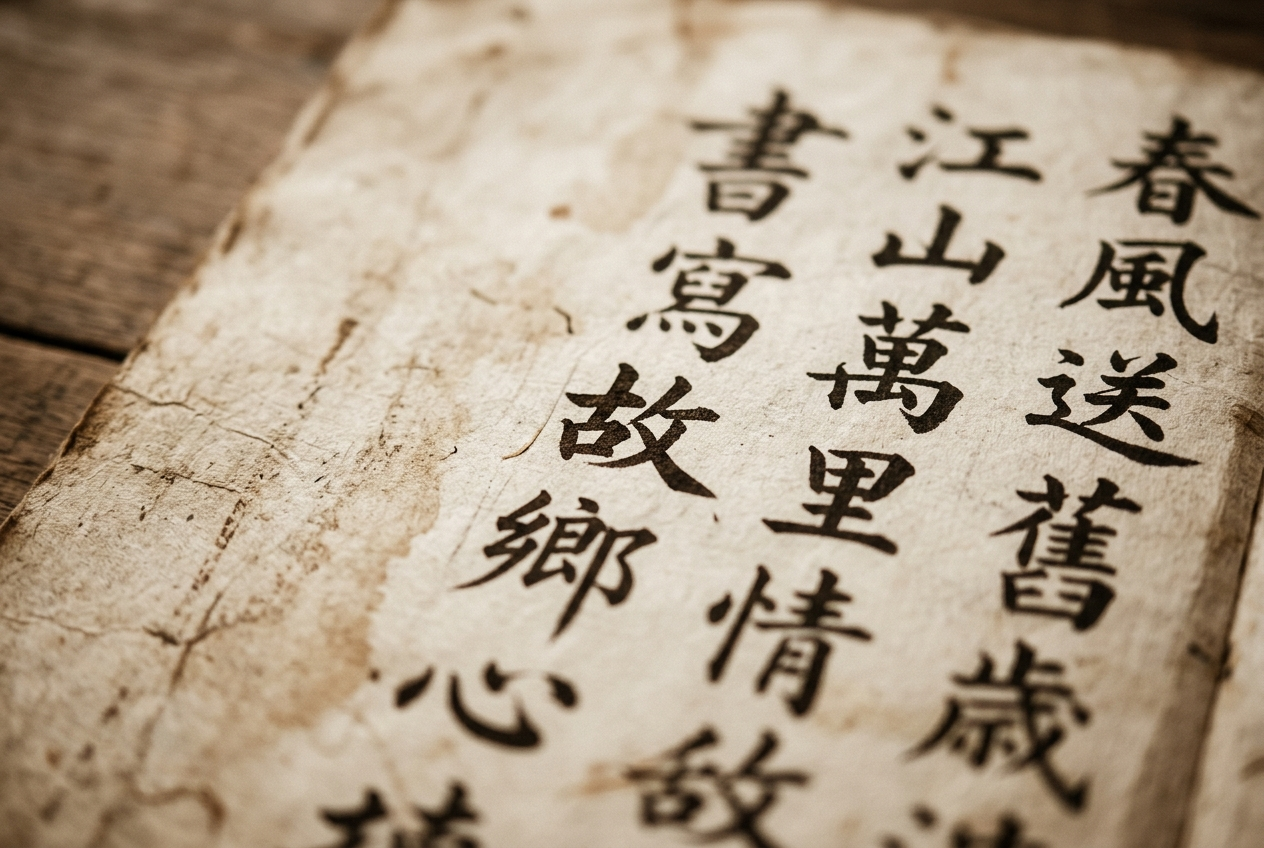 春風送舊歲
江山萬里情
書寫故鄉心